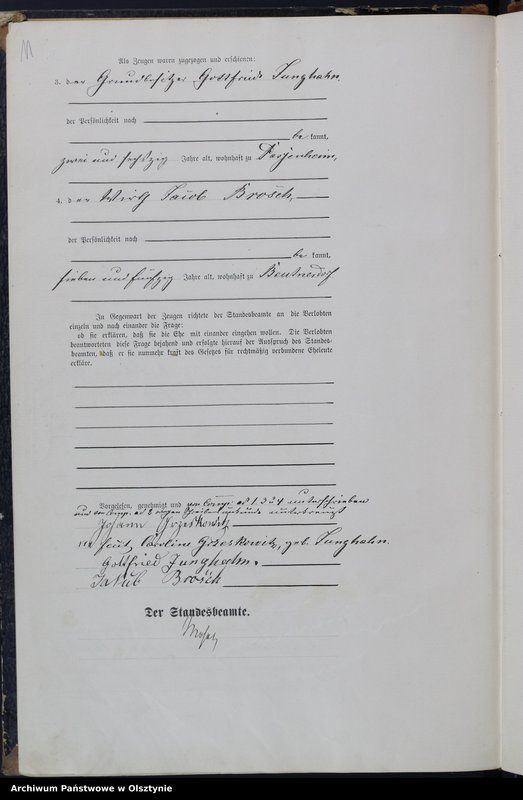 Als Zeugen waren zugezogen und erschienen:
3. der Grundbesitzer Gottfried Junghahn,
der Persönlichkeit nach
be kannt,
zwei und sechszig Jahre alt, wohnhaft zu
4. der Wirth Jacob Brosch,
der Persönlichkeit nach
be kannt,
sieben und fünfzig Jahre alt, wohnhaft zu Beutnerdorf
In Gegenwart der Zeugen richtete der Standesbeamte an die Verlobten
einzeln und nach einander die Frage:
ob sie erklären, daß sie die Ehe mit einander eingehen wollen. Die Verlobten
beantworteten diese Frage bejahend und erfolgte hierauf der Ausspruch des Standes-
beamten, daß er sie nunmehr kraft des Gesetzes für rechtmäßig verbundene Eheleute
erkläre.
Vorgelesen, genehmigt und von Comp. ad 1, 3 u 4 unterschrieben
und von Comp. ad 2 wegen unterkreuzt
Johann Grzeskowitz
xxx Caroline Grzeskowitz, geb. Junghahn.
Gottfried Junghahn.
Jakub Brosch
Der Standesbeamte.
Archiwum Państwowe w Olsztynie